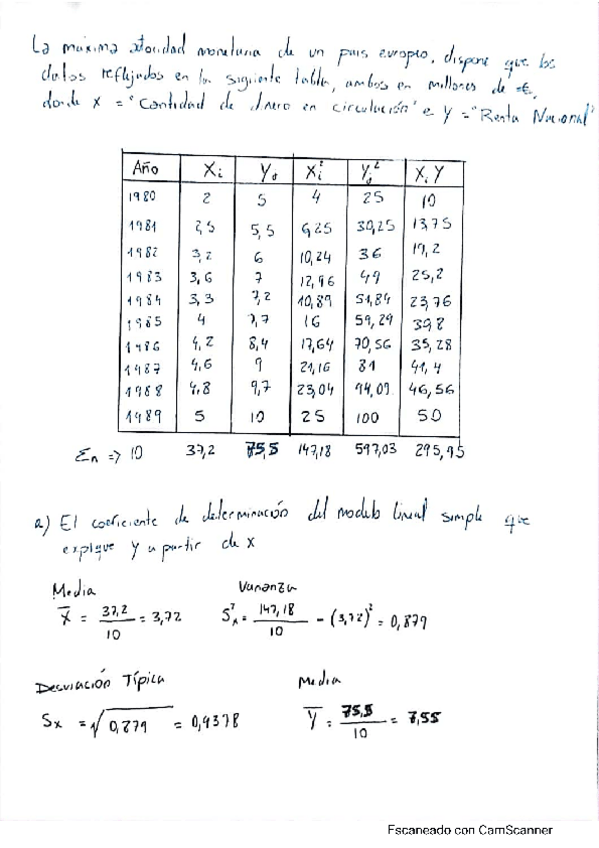 La máxima autoridad monetaria de un pais europeo, dispone que los
datos reflejados en la siguiente tabla, ambos en millones de €,
donde x = "Cantidad de dinero en circulación" e Y = "Renta Nacional"
Año Xi Yj Xi² Yj² Xi Y
1980 2 5 4 25 10
1981 2,5 5,5 6,25 30,25 13,75
1982 3,2 6 10,24 36 19,2
1983 3,6 7 12,96 49 25,2
1984 3,3 7,2 10,89 51,84 23,76
1985 4 7,7 16 59,29 30,8
1986 4,2 8,4 17,64 70,56 35,28
1987 4,6 9 21,16 81 41,4
1988 4,8 9,7 23,04 94,09 46,56
1989 5 10 25 100 50
Σn => 10 37,2 75,5 147,18 597,03 295,95
a) El coeficiente de determinación del modelo lineal simple que
explique y a partir de x
Media Varianza
X̄ = 37,2/10 = 3,72 Sx² = 147,18/10 - (3,72)² = 0,879
Desviación Típica Media
Sx = √0,879 = 0,9378 Ȳ = 75,5/10 = 7,55
Escaneado con CamScanner